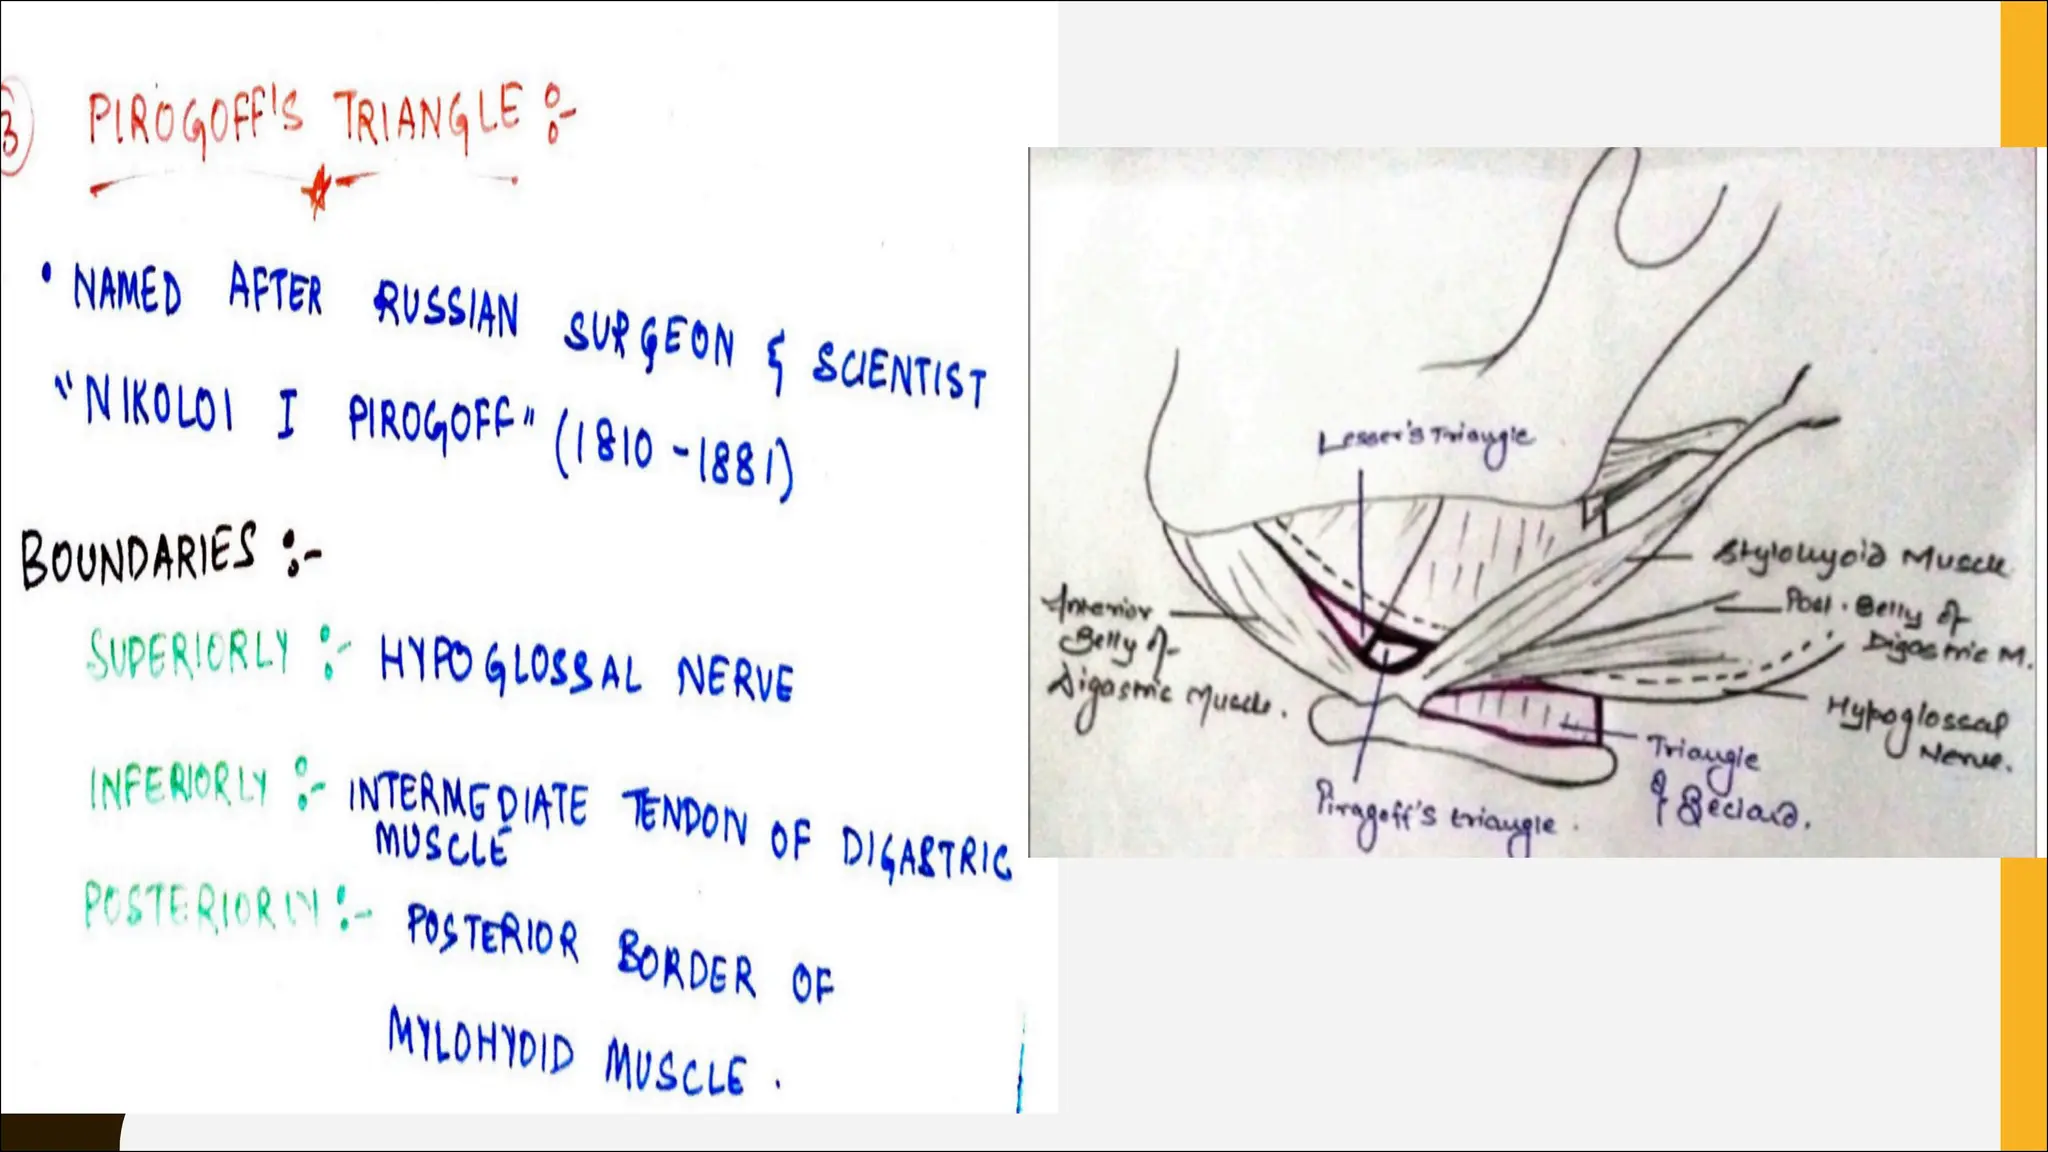 3 PIROGOFF'S TRIANGLE :-
• NAMED AFTER RUSSIAN SURGEON & SCIENTIST
"NIKOLOI I PIROGOFF" (1810-1881)
BOUNDARIES :-
SUPERIORLY :- HYPOGLOSSAL NERVE
INFERIORLY :- INTERMEDIATE TENDON OF DIGASTRIC
MUSCLE
POSTERIORLY :- POSTERIOR BORDER OF
MYLOHYOID MUSCLE.
Lesser's Triangle
Stylohyoid Muscle
Anterior
Belly of
Digastric Muscle.
Post. Belly of
Digastric M.
Hypoglossal
Nerve.
Triangle
of Beclard.
Piragoff's triangle.